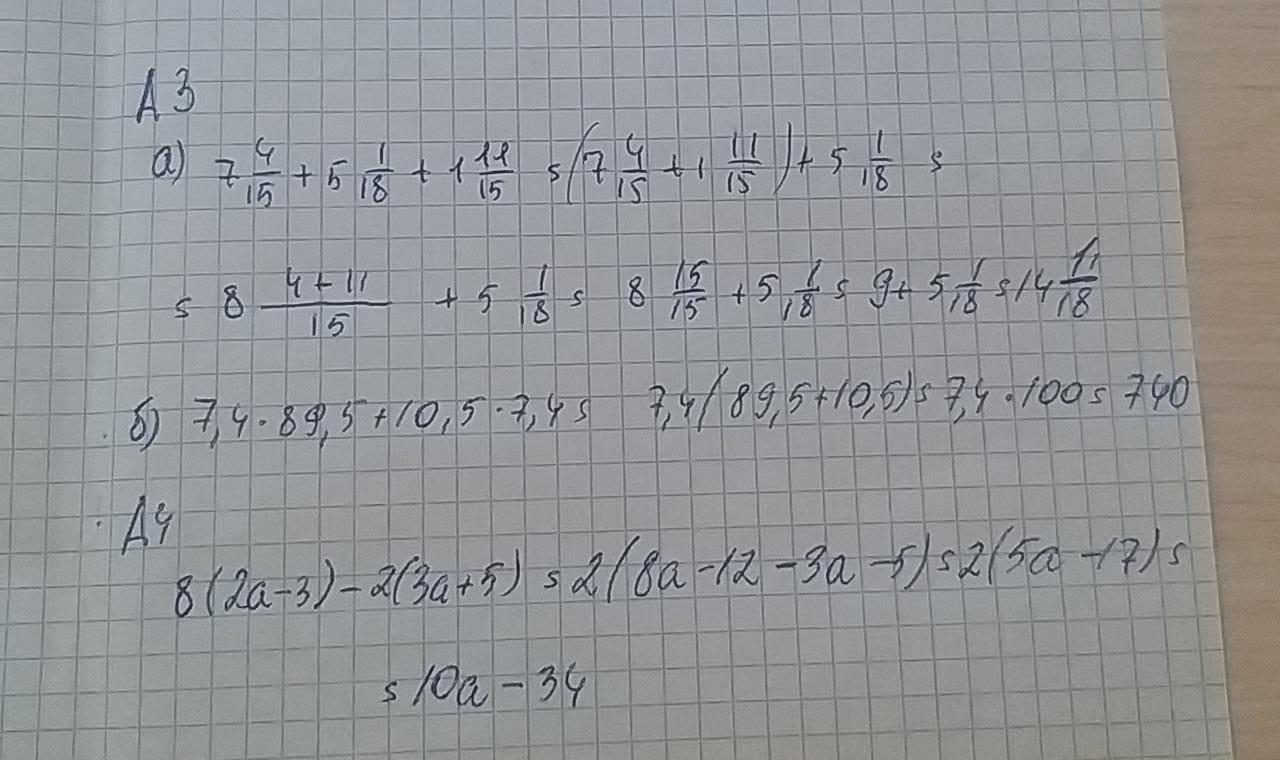 А3
а) 7 4/15 + 5 1/18 + 1 11/15 = (7 4/15 + 1 11/15) + 5 1/18 =
= 8 (4+11)/15 + 5 1/18 = 8 15/15 + 5 1/18 = 9 + 5 1/18 = 14 1/18
б) 7,4 · 89,5 + 10,5 · 7,4 = 7,4(89,5+10,5) = 7,4 · 100 = 740
А4
8(2a-3) - 2(3a+5) = 2(8a - 12 - 3a - 5) = 2(5a - 17) =
= 10a - 34